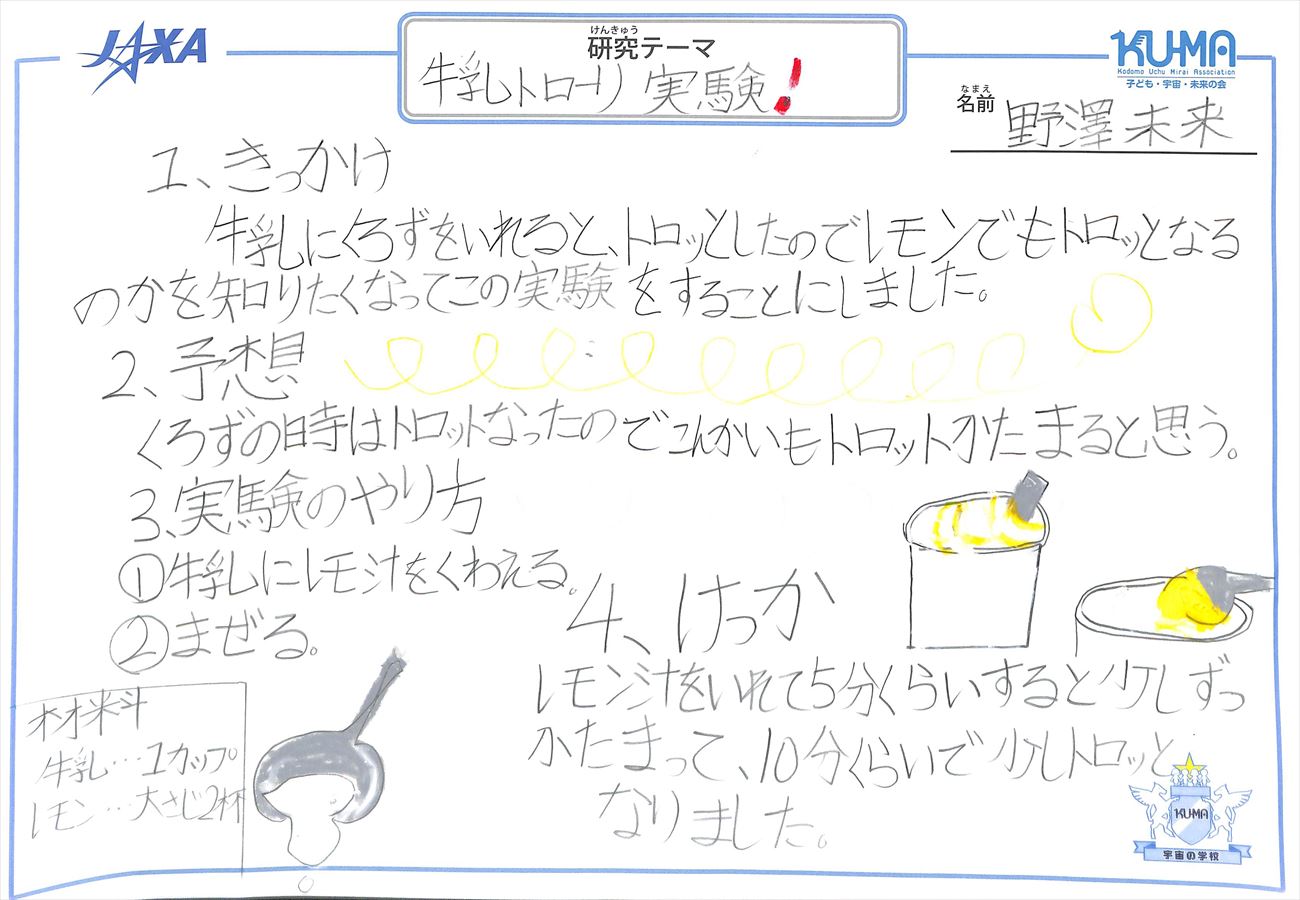 JAXA
けんきゅう
研究テーマ
牛乳トローリ実験!
KU-MA
Kodomo Uchu Mirai Association
子ども・宇宙・未来の会
なまえ
名前
野澤未来
1、きっかけ
牛乳にくろずをいれると、トロッとしたのでレモンでもトロッとなる
のかを知りたくなってこの実験をすることにしました。
2、予想
くろずの時はトロットなったのでこんかいもトロットかたまると思う。
3、実験のやり方
①牛乳にレモン汁をくわえる。
②まぜる。
材料
牛乳…1カップ
レモン…大さじ2杯
4、けっか
レモン汁をいれて5分くらいすると少しずつ
かたまって、10分くらいで少しトロッと
なりました。
KU-MA
宇宙の学校